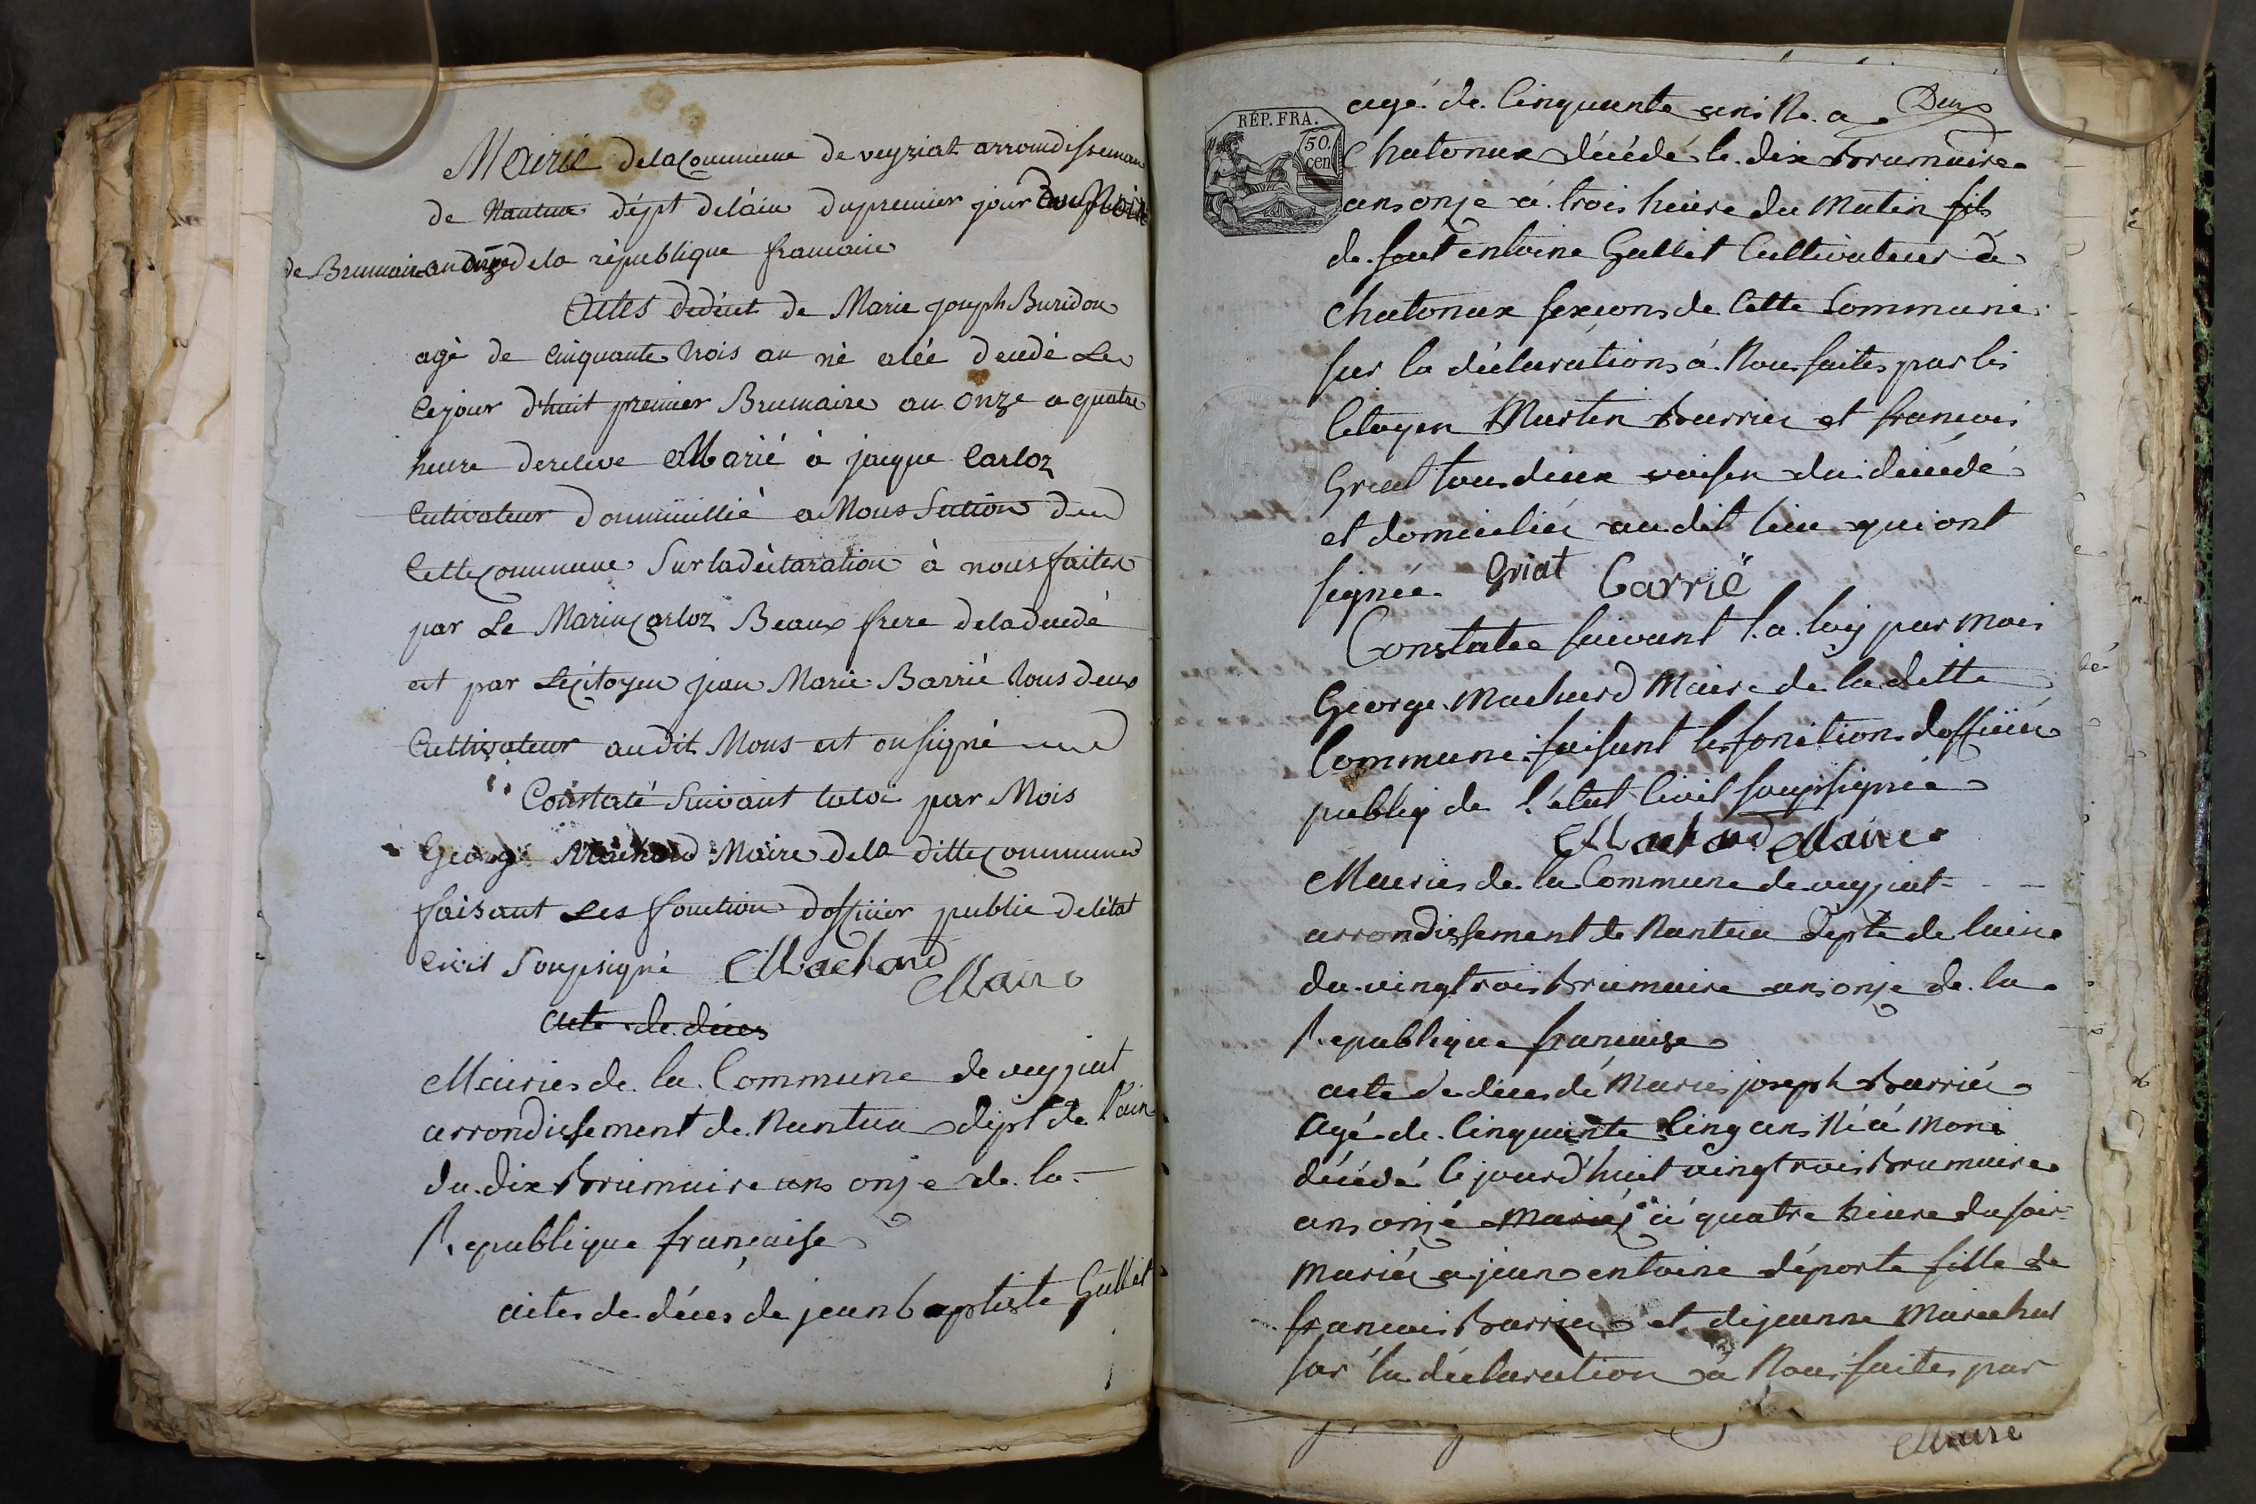 Mairie delacommune de veyriat arrondisseman
de Nantua dépt delain dupremier jour dumois
de Brumair an onze dela république francaise
Actes dedéces de Marie joseph Buridon
agé de cinquante trois an né alée decedé Le
cejour d'huit premier Brumaire an onze a quatre
heure dereleve Marié à jacque Carloz
Cutivateur domicillié a Mons Section de
Cette commune Surladéclaration à nous faites
par Le Marin Carloz Beaux frere deladecedé
et par Lecitoyen jean Marie Barrié tous deux
Cultivateur audit Mons et onsigné
Constaté Suivant laloi par Mois
George Machard Maire dela ditte commune
faisant Les fonction dofficier public delétat
Civil Soupsigné Machard
Maire
acte de déces
Mairies de la Commune de veyziat
arrondissement de Nantua dépt de l'ain
du dix brumaire ans onze de la
Republique française
actes de déces de jean baptiste Gullit
RÉP. FRA.
50. cen
Deux
agé de Cinquante ans Né a
Chatonax décédé le dix brumaire
ans onze à trois heure du Matin fils
de feut entoine Gullit Cultivateur à
Chatonax sexions de Cette Commune
sur la déclarations à Nous faites par les
Citoyen Martin Barrier et francois
Griat tous deux voisin du décédé
et domiciliés au dit lieu qui ont
signée Griat Carrié
Constatee suivant la loy par mois
George Machard Maire de la ditte
Commune faisant les fonctions dofficié
publiq de l'état Civil soupsignée
Machard Maire
Mairies de la Commune de veyziat
arrondissement de Nantua dépte de laine
du vingtrois brumaire ans onze de la
Republique française
acte de déces dé Maries joseph Barriés
Agé de Cinquante Cinq ans Né à Mons
décédé Cejourd'huit vingtrois brumaire
ans onze Mariés à quatre heure du soir
Mariés a jean entoine déporte fille de
francois Barrier et de jeanne Marechal
sur la déclaration à Nous faites par
Maire